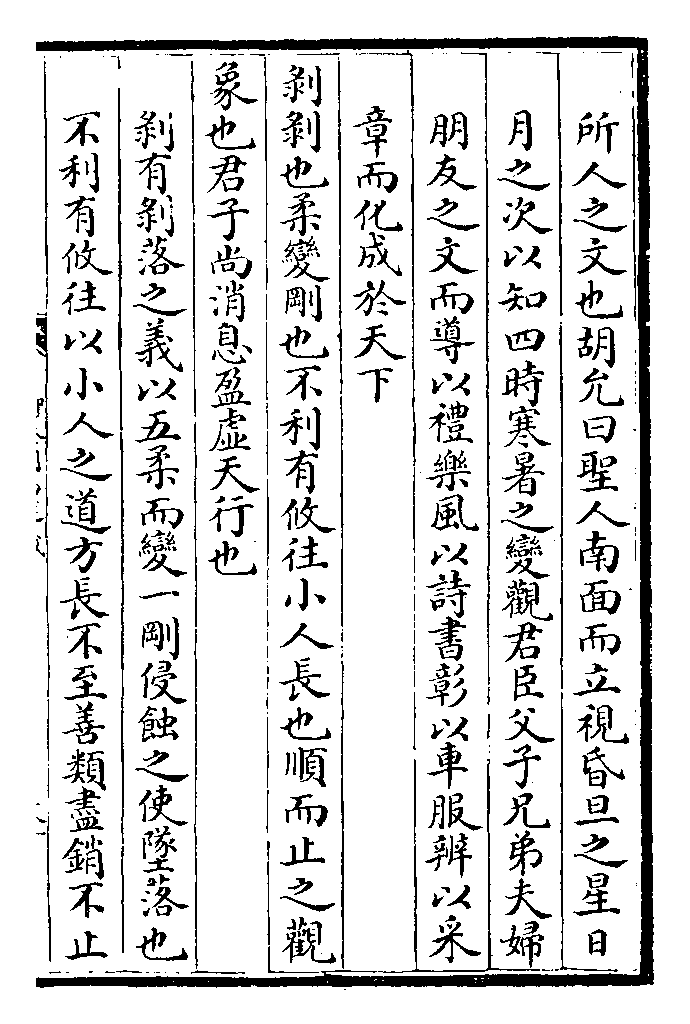 所人之文也胡允曰聖人南面而立視昏旦之星日
月之次以知四時寒暑之變觀君臣父子兄弟夫婦
朋友之文而導以禮樂風以詩書彰以車服辨以采
章而化成於天下
剥剥也柔變剛也不利有攸往小人長也順而止之觀
象也君子尚消息盈虚天行也
剥有剥落之義以五柔而變一剛侵蝕之使墜落也
不利有攸往以小人之道方長不至善類盡銷不止